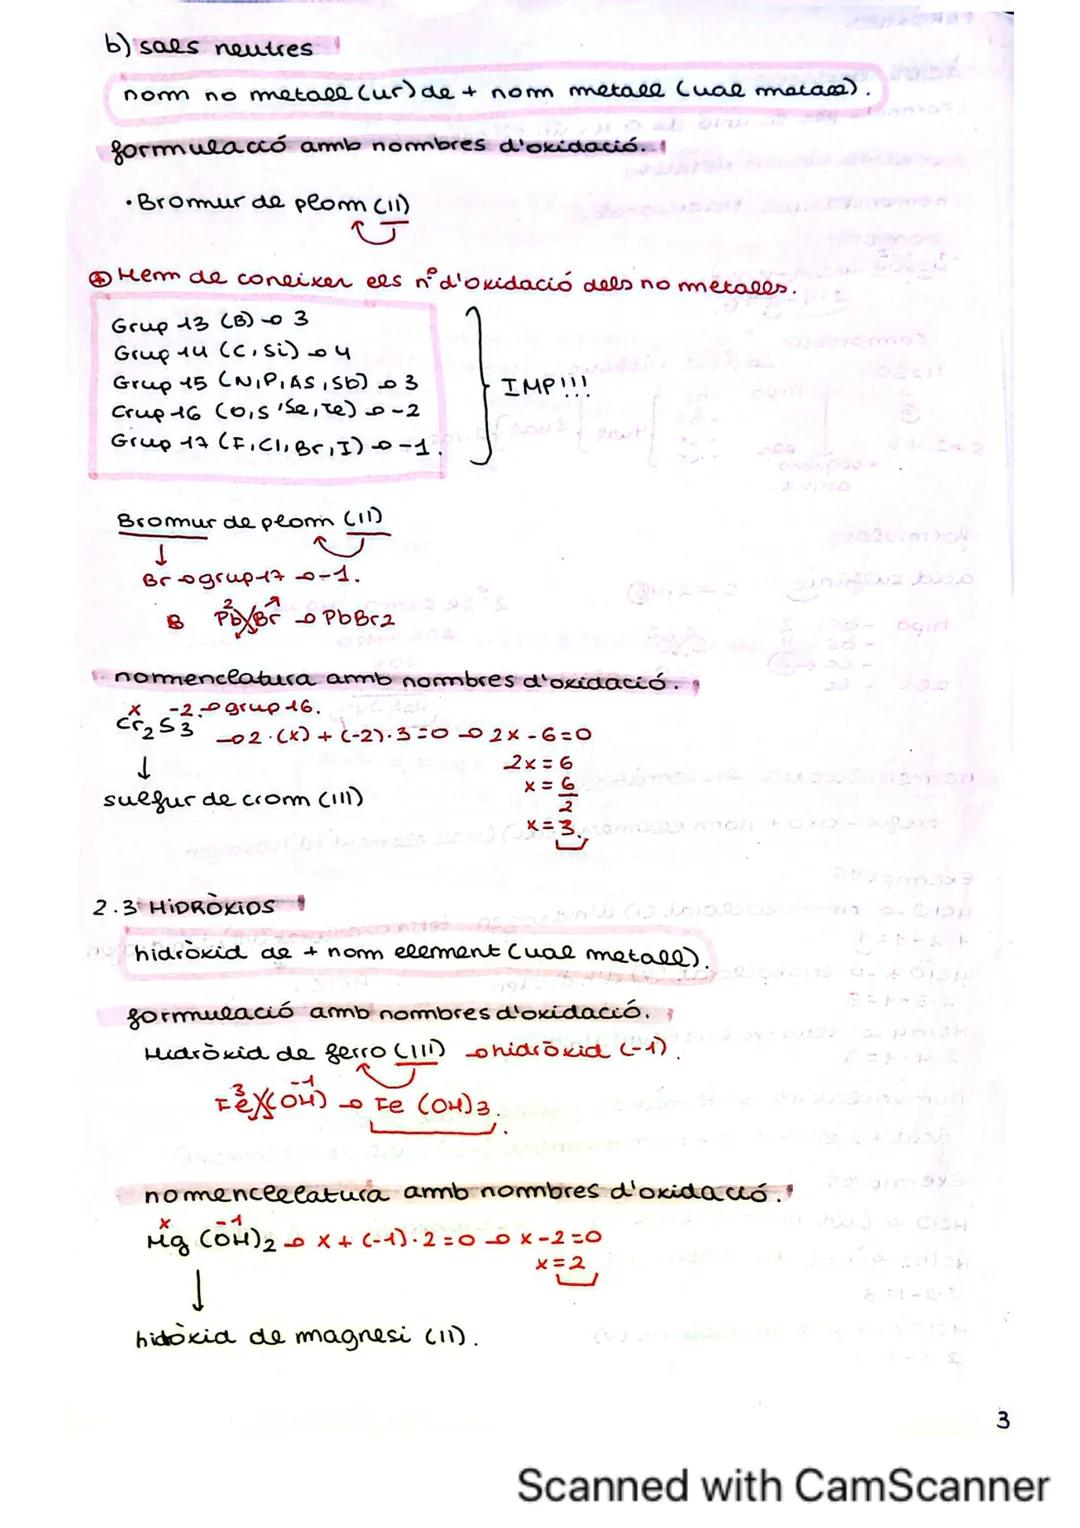 b) sals neutres
nom no metall (ur) de + nom metall (val metall).
formulació amb nombres d'oxidació.
• Bromur de plom (II)
⊕ Hem de coneixer els nº d'oxidació dels no metalls.
Grup 13 (B) → 3
Grup 14 (C, Si) → 4
Grup 15 (N, P, As, Sb) → 3
Grup 16 (O, S, Se, Te) → -2
Grup 17 (F, Cl, Br, I) → -1.
IMP!!!
Bromur de plom (II)
↓
Br → grup 17 → -1.
B Pb² Br⁻¹ → PbBr2
nomenclatura amb nombres d'oxidació.
x -2 → grup 16.
Cr2S3 → 2·(x) + (-2)·3=0 → 2x-6=0
↓ 2x=6
x = 6/2
sulfur de crom (III)
x=3.
2.3 HIDRÒXIDS
hidròxid de + nom element (val metall).
formulació amb nombres d'oxidació.
Hidròxid de ferro (III) → hidròxid (-1).
Fe³ (OH)⁻¹ → Fe (OH)3.
nomencelatura amb nombres d'oxidació.
x -1
Mg (OH)2 → x + (-1)·2=0 → x-2=0
x=2
↓
hidòxid de magnesi (II).
3
Scanned with CamScanner